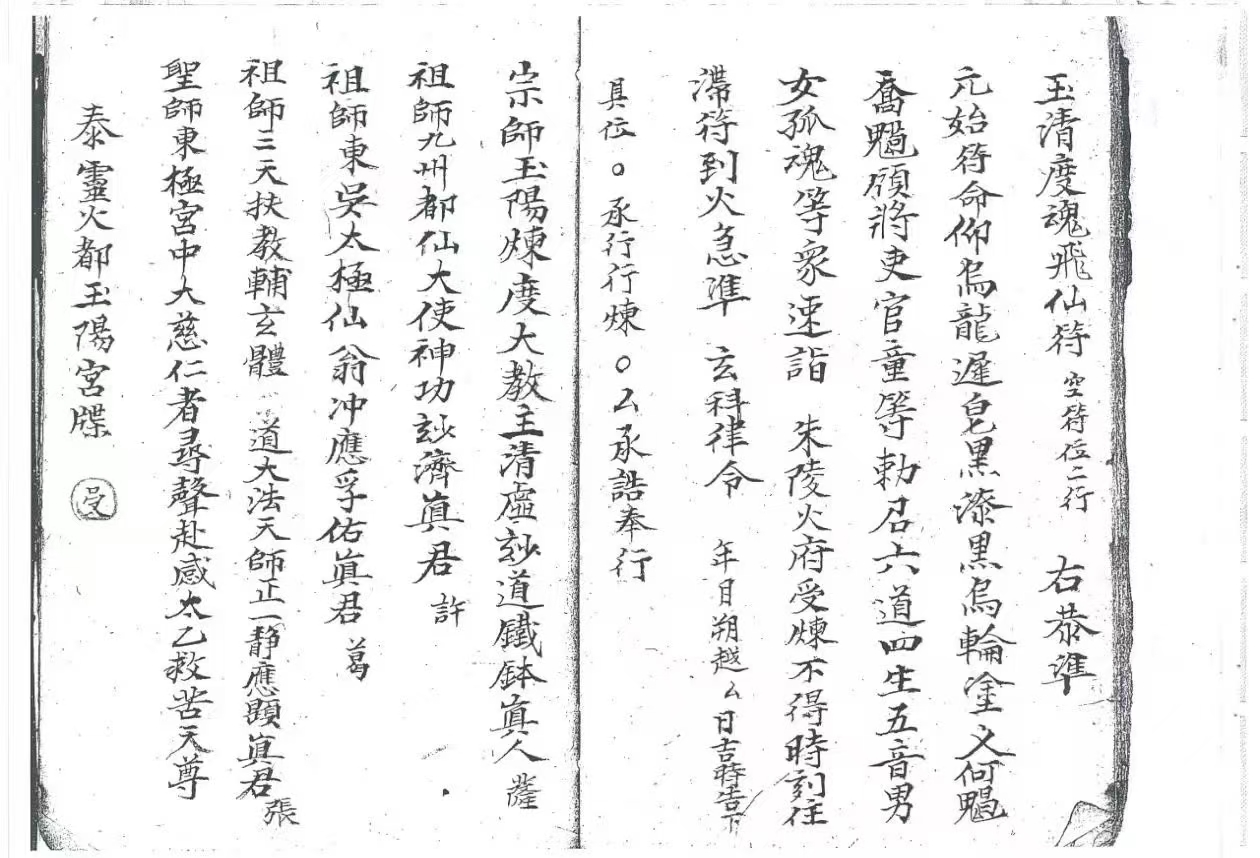 玉清度魂飛仙符 空符位二行 右恭準
元始符命仰烏龍遲皂黑漆黑烏輪塗义何魈
喬魈領將吏官童等勅召六道四生五音男
女孤魂等衆速詣 朱陵火府受煉不得時刻住
滯符到火急準 玄科律令 年月朔越厶日吉時告下
具位○承行行煉○厶承誥奉行
宗師玉陽煉度大教主清虛玅道鐵鉢眞人
祖師九州都仙大使神功玅濟眞君 許
祖師東吳太極仙翁冲應孚佑眞君 葛
祖師三天扶教輔玄體道大法天師正一靜應顯眞君 張
聖師東極宮中大慈仁者尋聲赴感太乙救苦天尊
泰靈火都玉陽宮牒